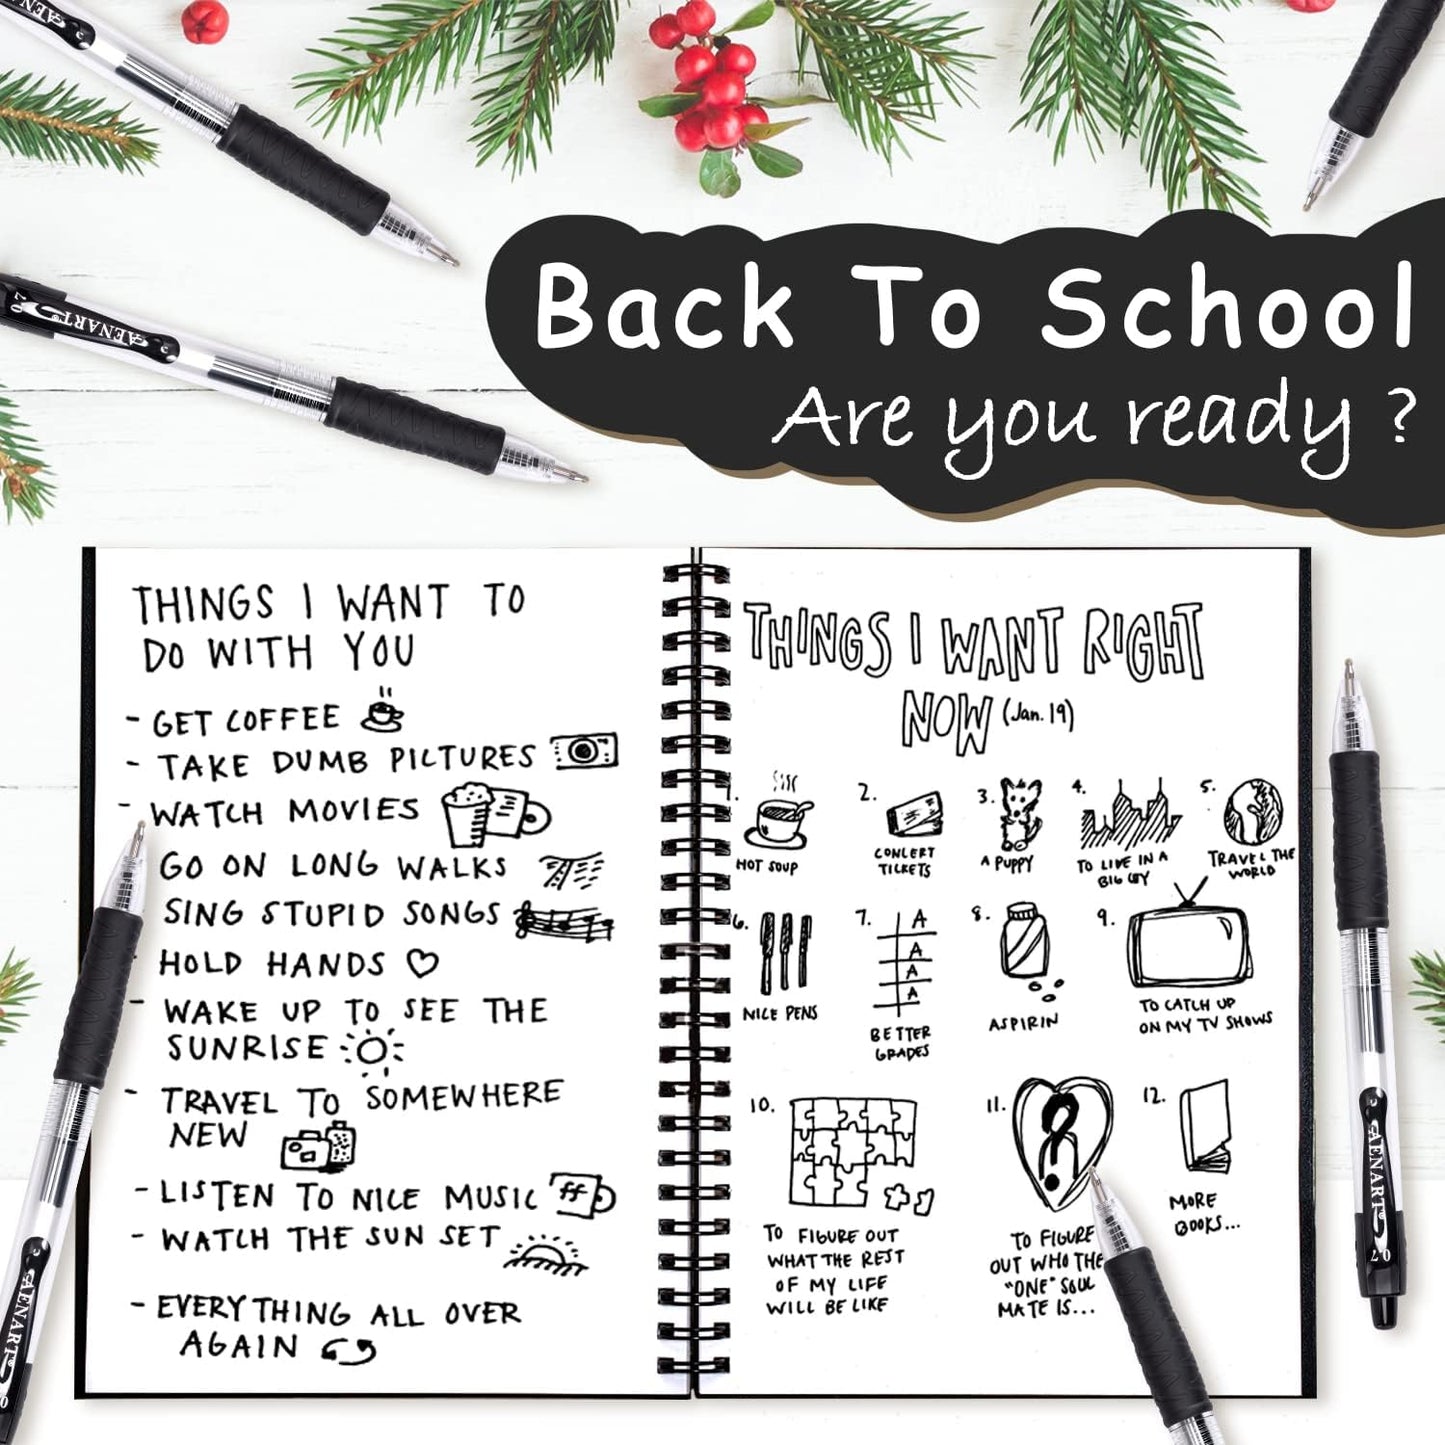 Back To School
Are you ready ?
AENART
AENART
0.7
THINGS I WANT TO
DO WITH YOU
- GET COFFEE
- TAKE DUMB PICTURES
- WATCH MOVIES
GO ON LONG WALKS
SING STUPID SONGS
HOLD HANDS
- WAKE UP TO SEE THE
SUNRISE
- TRAVEL TO SOMEWHERE
NEW
- LISTEN TO NICE MUSIC
- WATCH THE SUN SET
- EVERYTHING ALL OVER
AGAIN
THINGS I WANT RIGHT
NOW (Jan. 19)
1.
HOT SOUP
2.
CONCERT
TICKETS
3.
A PUPPY
4.
TO LIVE IN A
BIG CITY
5.
TRAVEL THE
WORLD
6.
NICE PENS
7.
A
A
A
A
BETTER
GRADES
8.
ASPIRIN
9.
TO CATCH UP
ON MY TV SHOWS
10.
TO FIGURE OUT
WHAT THE REST
OF MY LIFE
WILL BE LIKE
11.
?
TO FIGURE
OUT WHO THE
"ONE" SOUL
MATE IS...
12.
MORE
BOOKS...
AENART
AENART
0.7